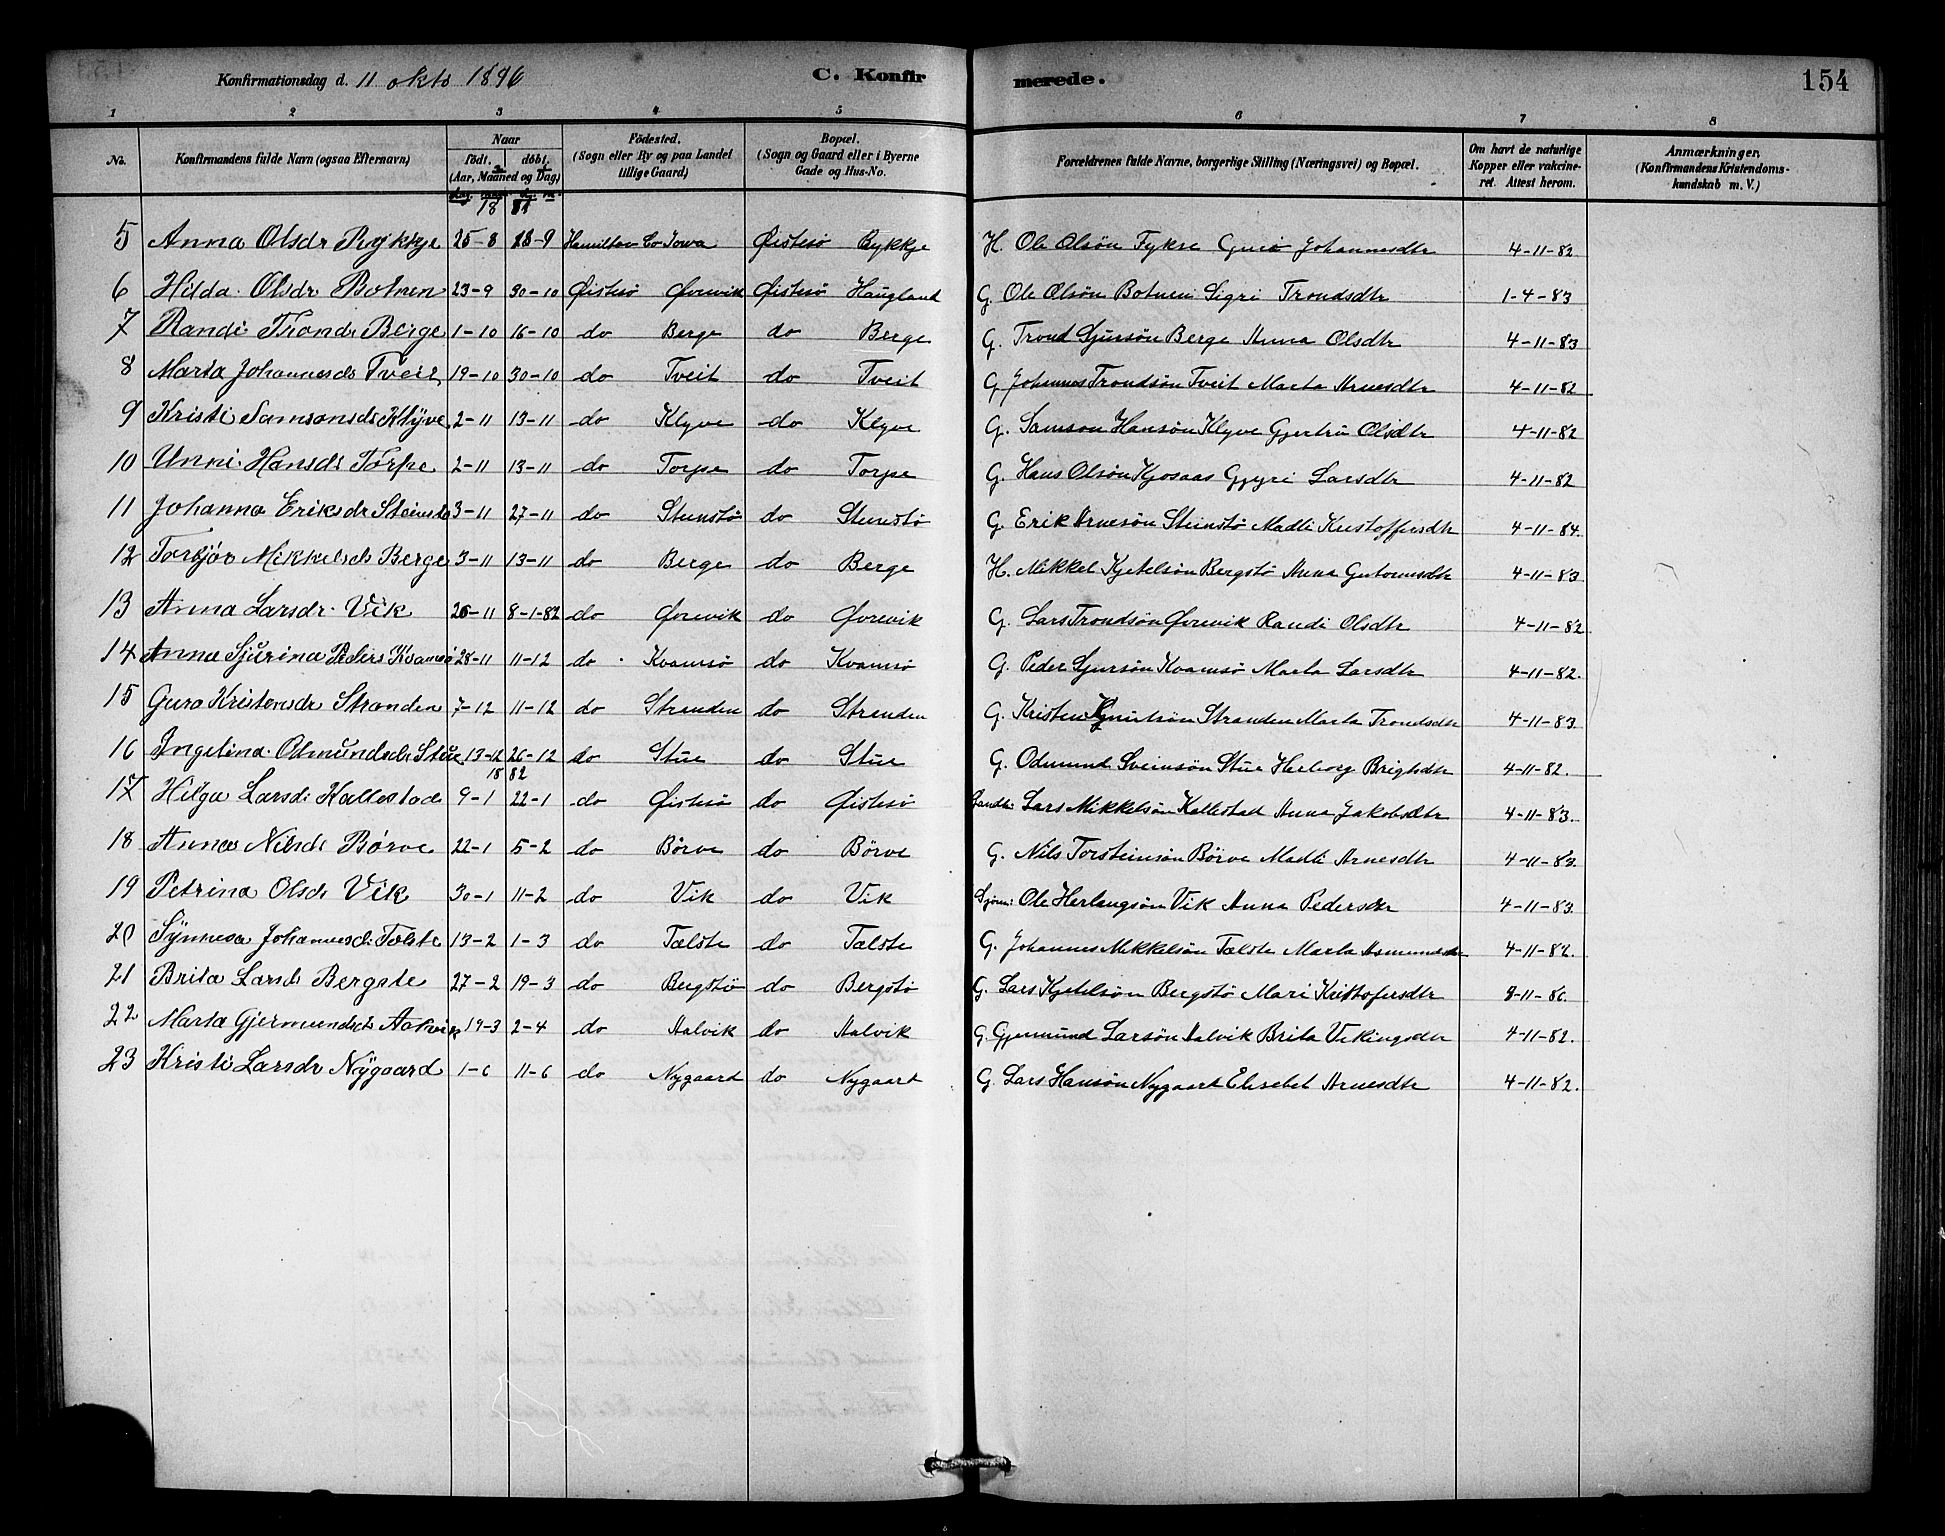 Konfirmationsdag d. 11 okto 1896 C. Konfirmerede. 154
1 2 3 4 5 6 7 8
No. Konfirmandens fulde Navn (ogsaa Efternavn) Naar födt, döbt, (Aar, Maaned og Dag) Födested. (Sogn eller By og paa Landet tillige Gaard) Bopæl. (Sogn og Gaard eller i Byerne Gade og Hus-No. Forældrenes fulde Navne, borgerlige Stilling (Næringsvei) og Bopæl. Om havt de naturlige Kopper eller vakcineret. Attest herom. Anmærkninger, (Konfirmandens Kristendomskundskab m. V.)
18 81
5 Anna Olsdr Bykkje 25-8 18-9 Hamilton Co Iowa Øistesø Bykkje H. Ole Olsön Fykse Guro Johannesdtr 4-11-82
6 Hilda Olsdr Botnen 23-9 30-10 Øistesø Øvrevik Øistesø Haugland G. Ole Olsön Botnen Sigri Trondsdtr 1-4-83
7 Randi Tronds Berge 1-10 16-10 do Berge do Berge G. Trond Sjursön Berge Anna Olsdtr 4-11-83
8 Marta Johannesds Tveit 19-10 30-10 do Tveit do Tveit G. Johannes Trondsön Tveit Marta Arnesdtr 4-11-82
9 Kristi Samsonsds Klyve 2-11 13-11 do Klyve do Klyve G. Samson Hansön Klyve Gjertru Olsdtr 4-11-82
10 Unni Hansds Torpe 2-11 13-11 do Torpe do Torpe G. Hans Olsön Kjosaas Gyri Larsdtr 4-11-82
11 Johanna Eriksdr Steinstø 3-11 27-11 do Steinstö do Steinstö G. Erik Arnesön Steinstö Madli Kristoffersdtr 4-11-84.
12 Torbjør Mikkelsds Berge 3-11 13-11 do Berge do Berge H. Mikkel Kjetelsön Bergstö Anna Guttormsdtr 4-11-83
13 Anna Larsdr. Vik 26-11 8-1-82 do Øvrevik do Øvrevik G. Lars Trondsön Øvrevik Randi Olsdtr 4-11-82.
14 Anna Sjurina Peders Kvamsø 28-11 11-12 do Kvamsö do Kvamsö G. Peder Sjursön Kvamsö Marta Larsdtr 4-11-82.
15 Guro Kristensdr Stranden 7-12 11-12 do Stranden do Stranden G. Kristen Knutsön Stranden Marta Trondsdtr 4-11-83
16 Ingelina Odmundsds Stue 13-12 26-12 do Stue do Stue G. Odmund Sveinsön Stue Herborg Brigtsdtr 4-11-82.
18 82
17 Hilga Larsds Kallestad 9-1 22-1 do Øistesö do Øistesö Lars Mikkelsön Kallestad Anna Jakobsdtr 4-11-83.
18 Anna Nilsds Børve 22-1 5-2 do Börve do Börve G. Nils Torsteinsön Börve Madli Arnesdtr 4-11-83.
19 Petrina Olsds Vik 30-1 11-2 do Vik do Vik Ole Herlaugsön Vik Anna Pedersdtr 4-11-83.
20 Synneva Johannesds Tolste 13-2 1-3 do Tolste do Tolste G. Johannes Mikkelsön Tolste Marta Asmundsdtr 4-11-82.
21 Brita Larsds Bergste 27-2 19-3 do Bergstö do Bergstö G. Lars Kjetelsön Bergstö Mari Kristofersdtr 8-11-86.
22 Marta Gjermundsds Aalvik 19-3 2-4 do Aalvik do Aalvik G. Gjermund Larsön Aalvik Brita Vikingsdtr 4-11-82.
23 Kristi Larsdr Nygaard 1-6 11-6 do Nygaart do Nygaart G. Lars Hansön Nygaart Elisebet Arnesdtr 4-11-82.